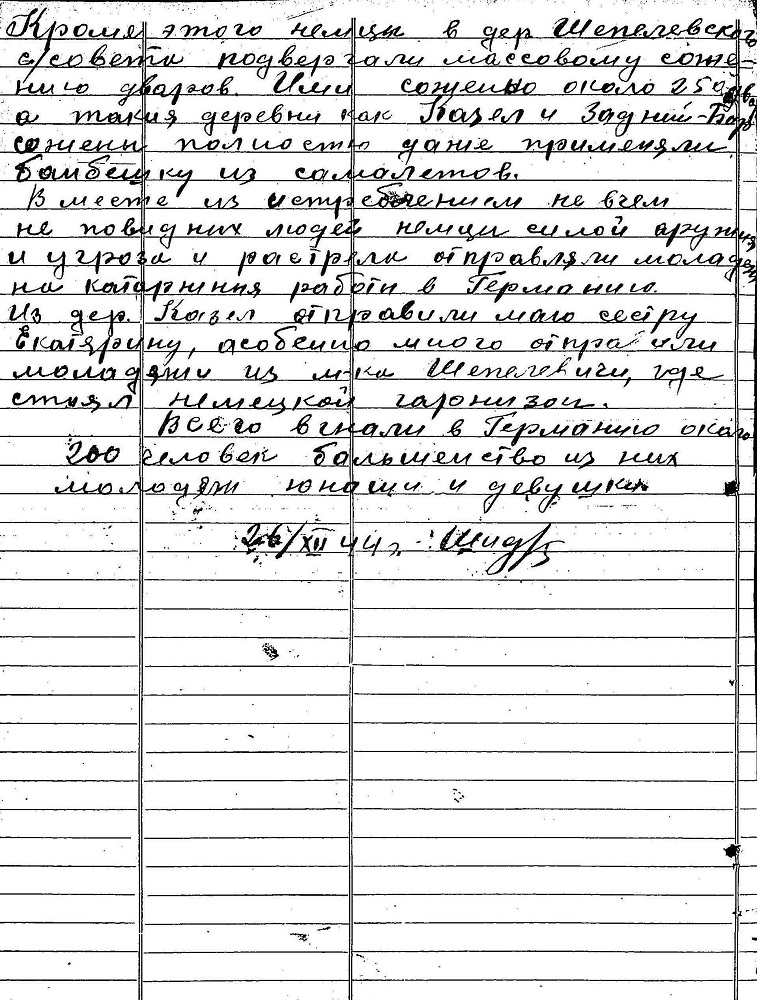 Кроме этого немцы в дер Шепелевского
с/совета подвергали массовому соже-
нию дваров. Ими сожено около 250 два
а такия деревни как Казел и Задний-Бор
сожены полностю даже применяли
бамбешку из самалетов.
Вместе из истреблением не вчем
не повидних людей немци силой аружия
и угроза и растрела отправляли моладеж
на каторжния работи в Германию.
Из дер. Казел отправили маю сестру
Екатярину, асобенно много отправили
моладяжи из м-ка Шепелевичи, где
стоял немецкой гарнизон.
Всего вгнали в Германию окало
200 человек бальшенство из них
моладяж юноши и девушки
26/XII 44 г.